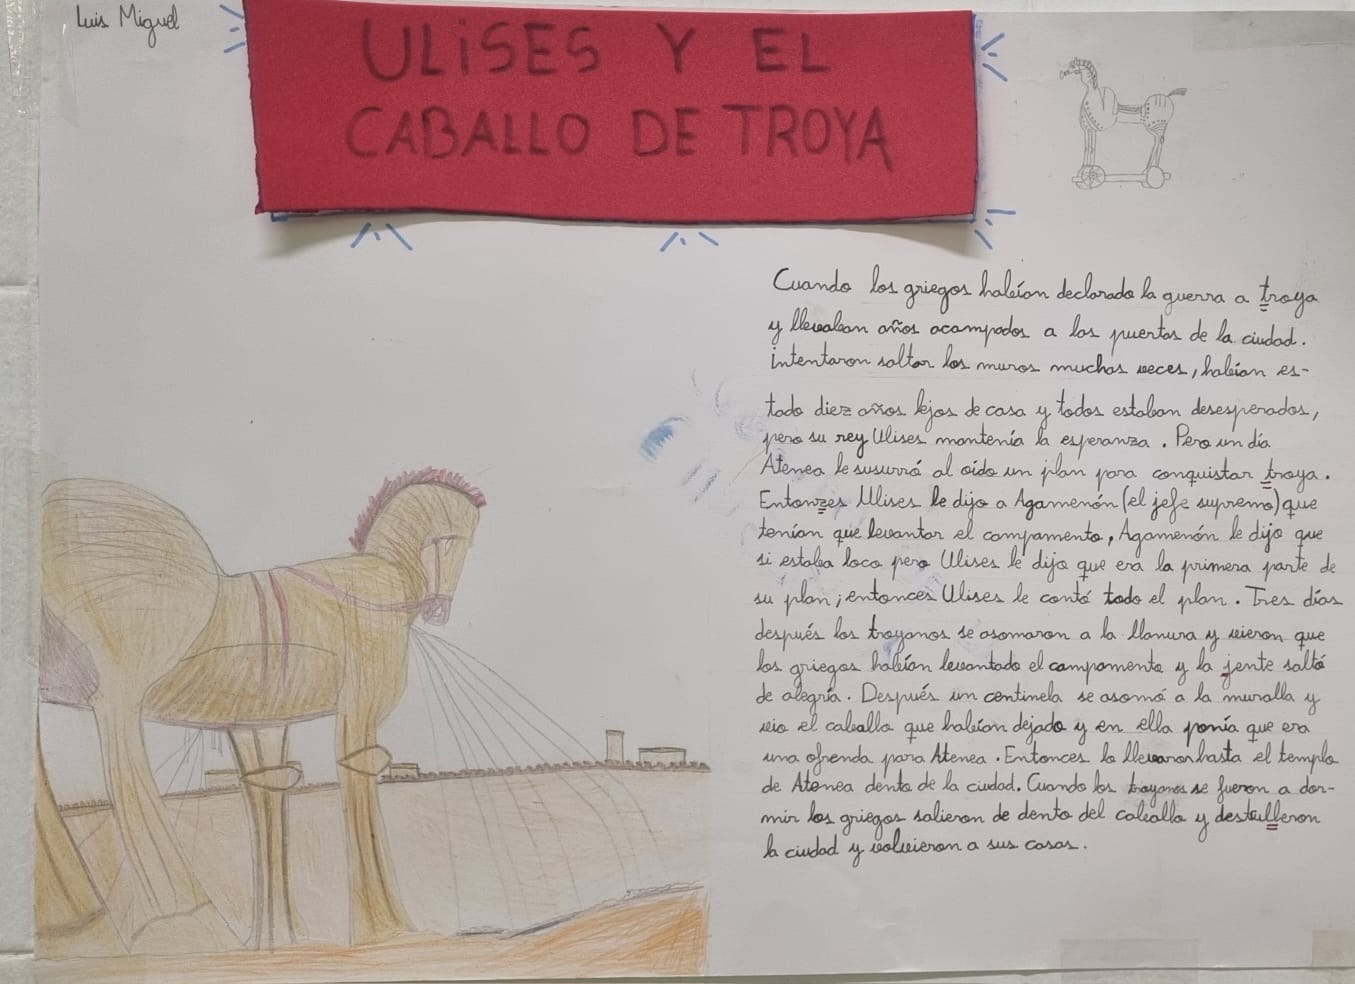 Luis Miguel
ULiSES Y EL
CABALLO DE TROYA
Cuando los griegos habían declarado la guerra a troya
y llevaban años acampados a las puertas de la ciudad.
intentaron saltar los muros muchas veces, habían es-
tado diez años lejos de casa y todos estaban desesperados,
pero su rey Ulises mantenía la esperanza. Pero un día
Atenea le susurró al oído un plan para conquistar troya.
Entonzes Ulises le dijo a Agamenón (el jefe supremo) que
tenían que levantar el campamento, Agamenón le dijo que
si estaba loco pero Ulises le dijo que era la primera parte de
su plan; entonces Ulises le contó todo el plan. Tres días
después los troyanos se asomaron a la llanura y vieron que
los griegos habían levantado el campamento y la jente saltó
de alegría. Después un centinela se asomó a la muralla y
vio el caballo que habían dejado y en ella ponía que era
una ofrenda para Atenea. Entonces lo llevaron hasta el templo
de Atenea dento de la ciudad. Cuando los troyanos se fueron a dor-
mir los griegos salieron de dento del caballo y destulleron
la ciudad y volvieron a sus casas.